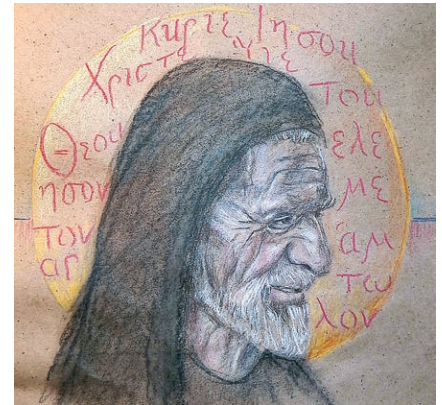 Κυριε Ιησου
Χριστε Ὑιε
του
Θεου ελε
ησον με
τον ἁμ
αρ τω
λον